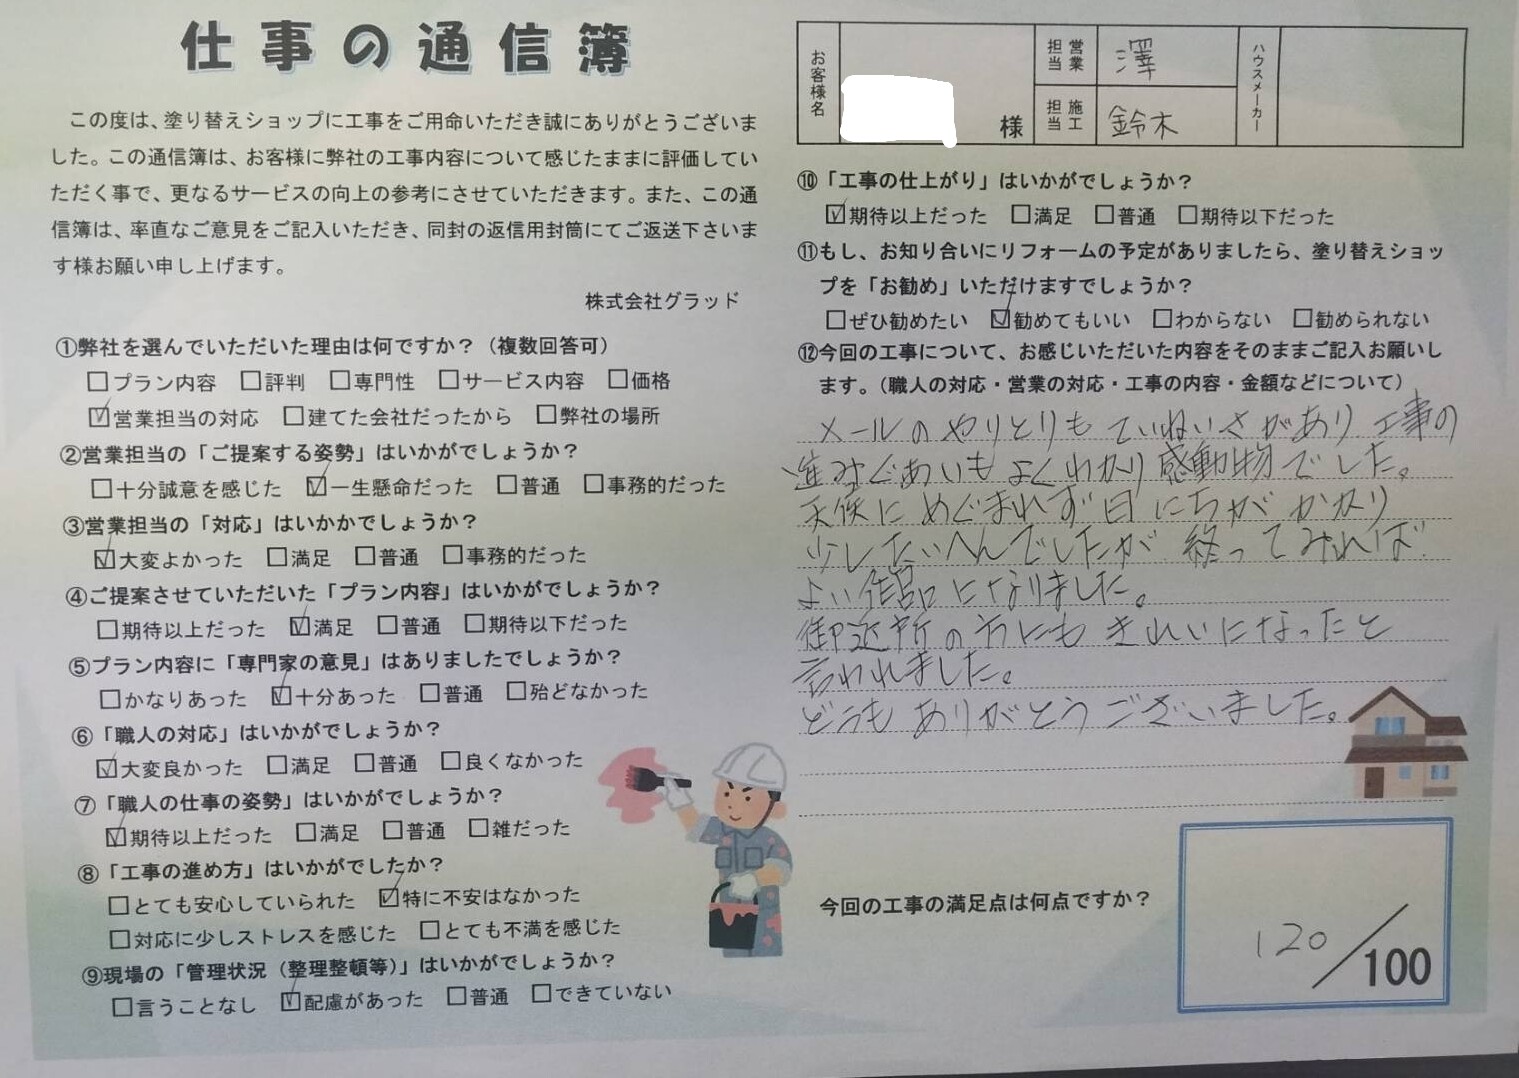 仕事の通信簿
この度は、塗り替えショップに工事をご用命いただき誠にありがとうございま
した。この通信簿は、お客様に弊社の工事内容について感じたままに評価してい
ただく事で、更なるサービスの向上の参考にさせていただきます。また、この通
信簿は、率直なご意見をご記入いただき、同封の返信用封筒にてご返送下さいま
す様お願い申し上げます。
株式会社グラッド
①弊社を選んでいただいた理由は何ですか？（複数回答可）
□プラン内容 □評判 □専門性 □サービス内容 □価格
☑営業担当の対応 □建てた会社だったから □弊社の場所
②営業担当の「ご提案する姿勢」はいかがでしょうか？
□十分誠意を感じた ☑一生懸命だった □普通 □事務的だった
③営業担当の「対応」はいかかでしょうか？
☑大変よかった □満足 □普通 □事務的だった
④ご提案させていただいた「プラン内容」はいかがでしょうか？
□期待以上だった ☑満足 □普通 □期待以下だった
⑤プラン内容に「専門家の意見」はありましたでしょうか？
□かなりあった ☑十分あった □普通 □殆どなかった
⑥「職人の対応」はいかがでしょうか？
☑大変良かった □満足 □普通 □良くなかった
⑦「職人の仕事の姿勢」はいかがでしょうか？
☑期待以上だった □満足 □普通 □雑だった
⑧「工事の進め方」はいかがでしたか？
□とても安心していられた ☑特に不安はなかった
□対応に少しストレスを感じた □とても不満を感じた
⑨現場の「管理状況（整理整頓等）」はいかがでしょうか？
□言うことなし ☑配慮があった □普通 □できていない
お客様名 様
営業担当 澤
施工担当 鈴木
ハウスメーカー
⑩「工事の仕上がり」はいかがでしょうか？
☑期待以上だった □満足 □普通 □期待以下だった
⑪もし、お知り合いにリフォームの予定がありましたら、塗り替えショッ
プを「お勧め」いただけますでしょうか？
□ぜひ勧めたい ☑勧めてもいい □わからない □勧められない
⑫今回の工事について、お感じいただいた内容をそのままご記入お願いし
ます。（職人の対応・営業の対応・工事の内容・金額などについて）
メールのやりとりもていねいさがあり工事の
進みぐあいもよくわかり感動物でした。
天候にめぐまれず日にちがかかり
少したいへんでしたが終ってみれば
よい作品になりました。
御近所の方にもきれいになったと
言われました。
どうもありがとうございました。
今回の工事の満足点は何点ですか？
120/100